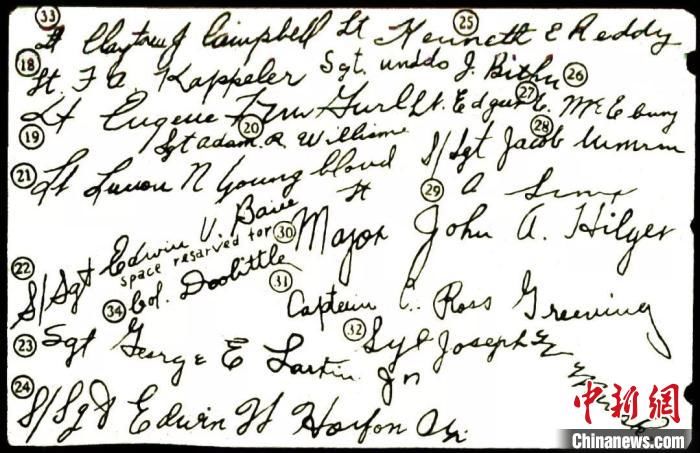 33 Lt Claytou J Campbell Lt 25 Kenneth E Reddy
18 Lt. F A. Kappeler Sgt. J. Bither 26
19 Lt Eugene F Lt. Edgar E. Mc E 27
20 Sgt adam. R. Williams S/Sgt Jacob 28
21 Lt N Young blood Lt 29 A
22 S/Sgt Edwin V. Bain 30 Major John A. Hilger
space resarved for
34 Col. Doolittle
31 Captain C. Ross Greening
23 Sgt George E Larkin Jr 32 Sgt Joseph
24 S/Sgt Edwin W Horton Jr.
中新网
Chinanews.com